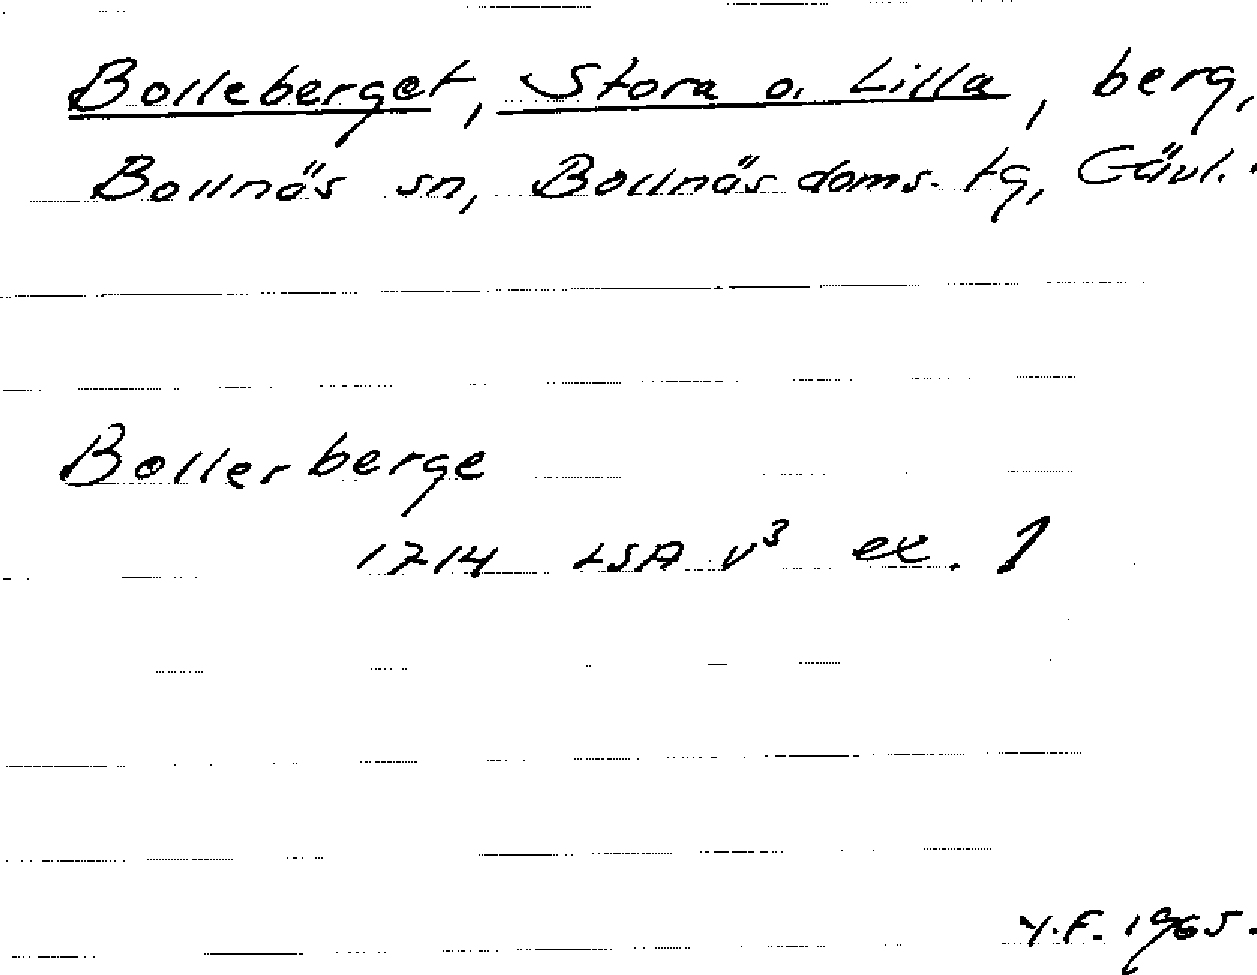 Bolleberget, Stora o. Lilla, berg,
Bollnäs sn, Bollnäs doms. tg, Gävl.
Bollerberge
1714 LSA V³ ex. 1
Y.F. 1965.